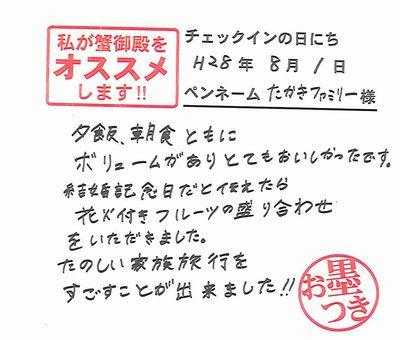 私が蟹御殿を
オススメ
します!!
チェックインの日にち
H28年 8月 1日
ペンネーム たかきファミリー様
夕飯、朝食 ともに
ボリュームがありとてもおいしかったです。
結婚記念日だと伝えたら
花火付きフルーツの盛り合わせ
をいただきました。
たのしい家族旅行を
すごすことが出来ました!!
お墨つき